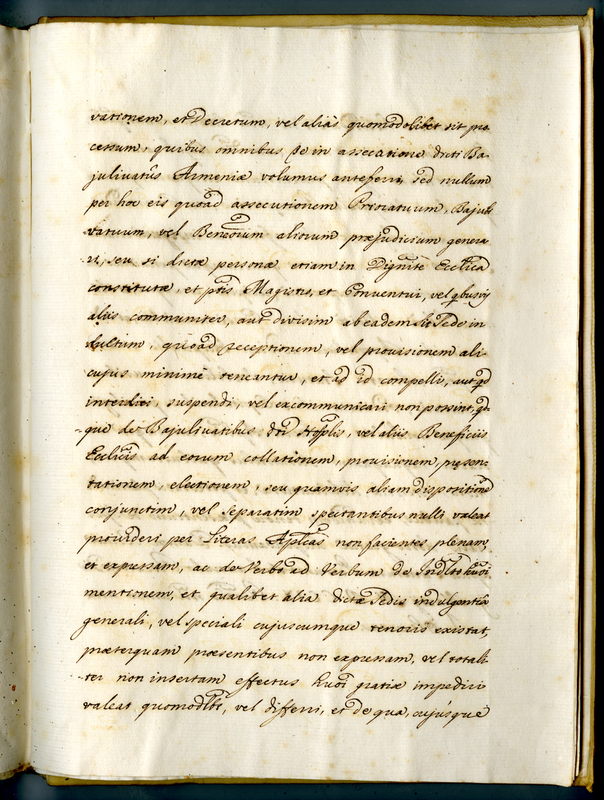 vationem, et Decretum, vel aliàs quomodolibet sit pro
cessum, quibus omnibus Te in assecutione dicti Ba-
julivatûs Armeniæ volumus anteferri, sed nullum
per hoc eis quoad assecutionem Prioratuum, Bajuli
vatuum, vel Beneorum aliorum præjudicium genera
ri, seu si dictæ personæ etiam in Dignite Ecclica
constitutæ, et ptis Magistro, et Conventui, vel qbusvis
aliis communiter, aut divisim ab eadem Sit Sede in
dultum, quoad receptionem, vel provisionem ali-
cujus minimè teneantur, et ad id compelli, aut qd
interdici, suspendi, vel excommunicari non possint, qd-
que de Bajulivatibus dti Hosplis, vel aliis Beneficiis
Ecclicis ad eorum collationem, provisionem, præsen-
tationem, electionem, seu quamvis aliam dispositionem
conjunctim, vel separatim spectantibus nulli valeat
provideri per Literas Aplcas non facientes plenam,
et expressam, ac de Verbo ad Verbum de Indlto huoi
mentionem, et qualibet alia dictæ Sedis indulgentia
generali, vel speciali cujuscumque tenoris existat,
præterquam præsentibus non expressam, vel totali
ter non insertam effectus huoi gratiæ impediri
valeat quomodlbt, vel differri, et de qua, cujúsque